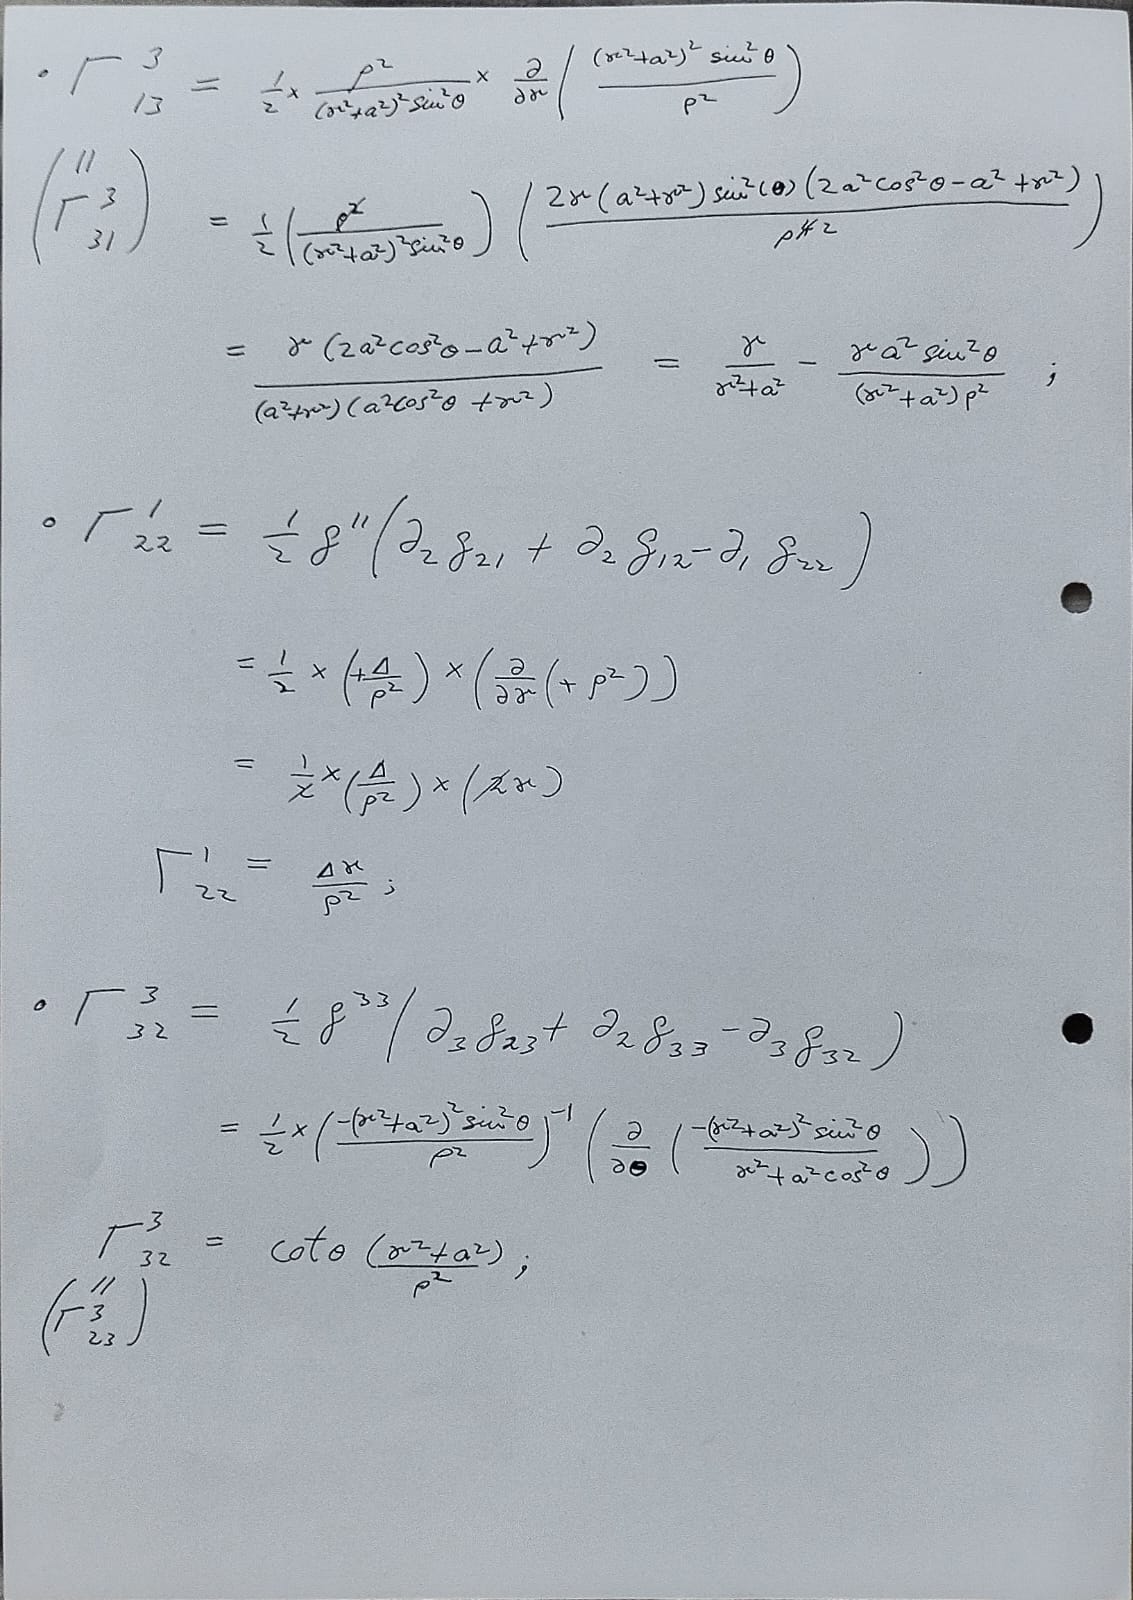 • Γ³₁₃ = 1/2 × ρ²/((r²+a²)² sin²θ) × ∂/∂r ( (r²+a²)² sin²θ / ρ² )
( " Γ³₃₁ ) = 1/2 ( ρ²/((r²+a²)² sin²θ) ) ( 2r(a²+r²) sin²(θ) (2a²cos²θ-a²+r²) / ρ⁴ ² )
= r(2a²cos²θ-a²+r²) / ((a²+r²)(a²cos²θ+r²)) = r/(r²+a²) - r a² sin²θ/((r²+a²)ρ²) ;
• Γ¹₂₂ = 1/2 g¹¹ ( ∂₂ g₂₁ + ∂₂ g₁₂ - ∂₁ g₂₂ )
= 1/2 × (+Δ/ρ²) × ( ∂/∂r (+ρ²) )
= 1/2 × (Δ/ρ²) × (2r)
Γ¹₂₂ = Δr/ρ² ;
• Γ³₃₂ = 1/2 g³³ ( ∂₃ g₂₃ + ∂₂ g₃₃ - ∂₃ g₃₂ )
= 1/2 × ( -(r²+a²)² sin²θ / ρ² )⁻¹ ( ∂/∂θ ( -(r²+a²)² sin²θ / (r²+a²cos²θ) ) )
Γ³₃₂ = cotθ (r²+a²)/ρ² ;
( " Γ³₂₃ )